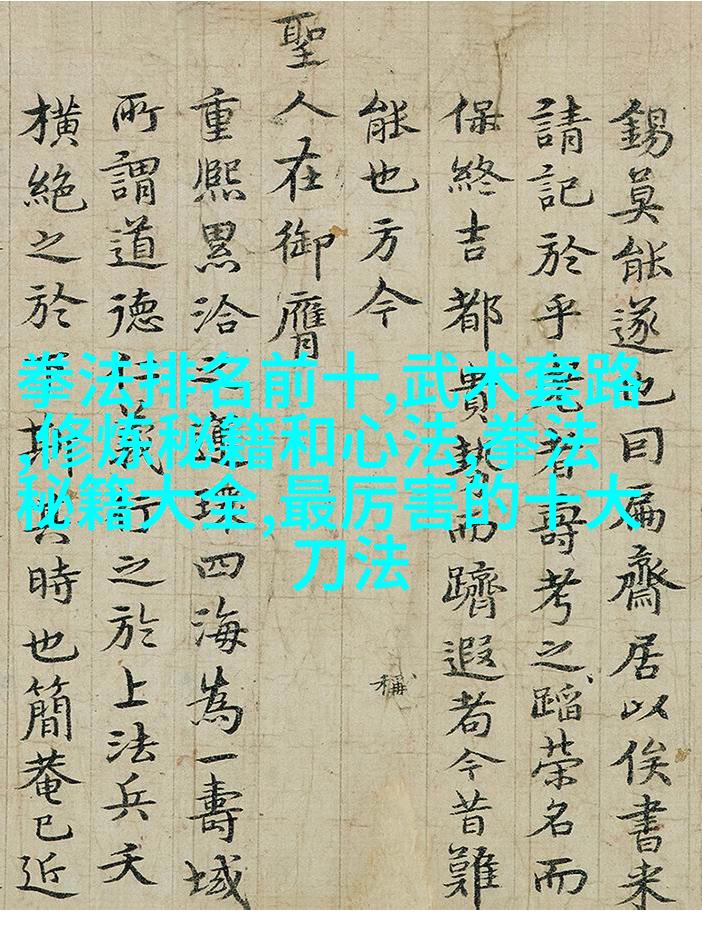 錫莫能遂也曰扁齋居以俟書来
請記於乎者壽考之蹈榮名而
保終吉都貴勢而躋遐今昔難
能也方今
稱
聖人在御膺
重熙累洽之環四海為一壽域
所謂道德仁義行之於上法兵夭
橫絕之於斯其時也簡菴已近
拳法排名前十,武术套路
,修炼秘籍和心法,拳法
秘籍大全,最厉害的十大
刀法